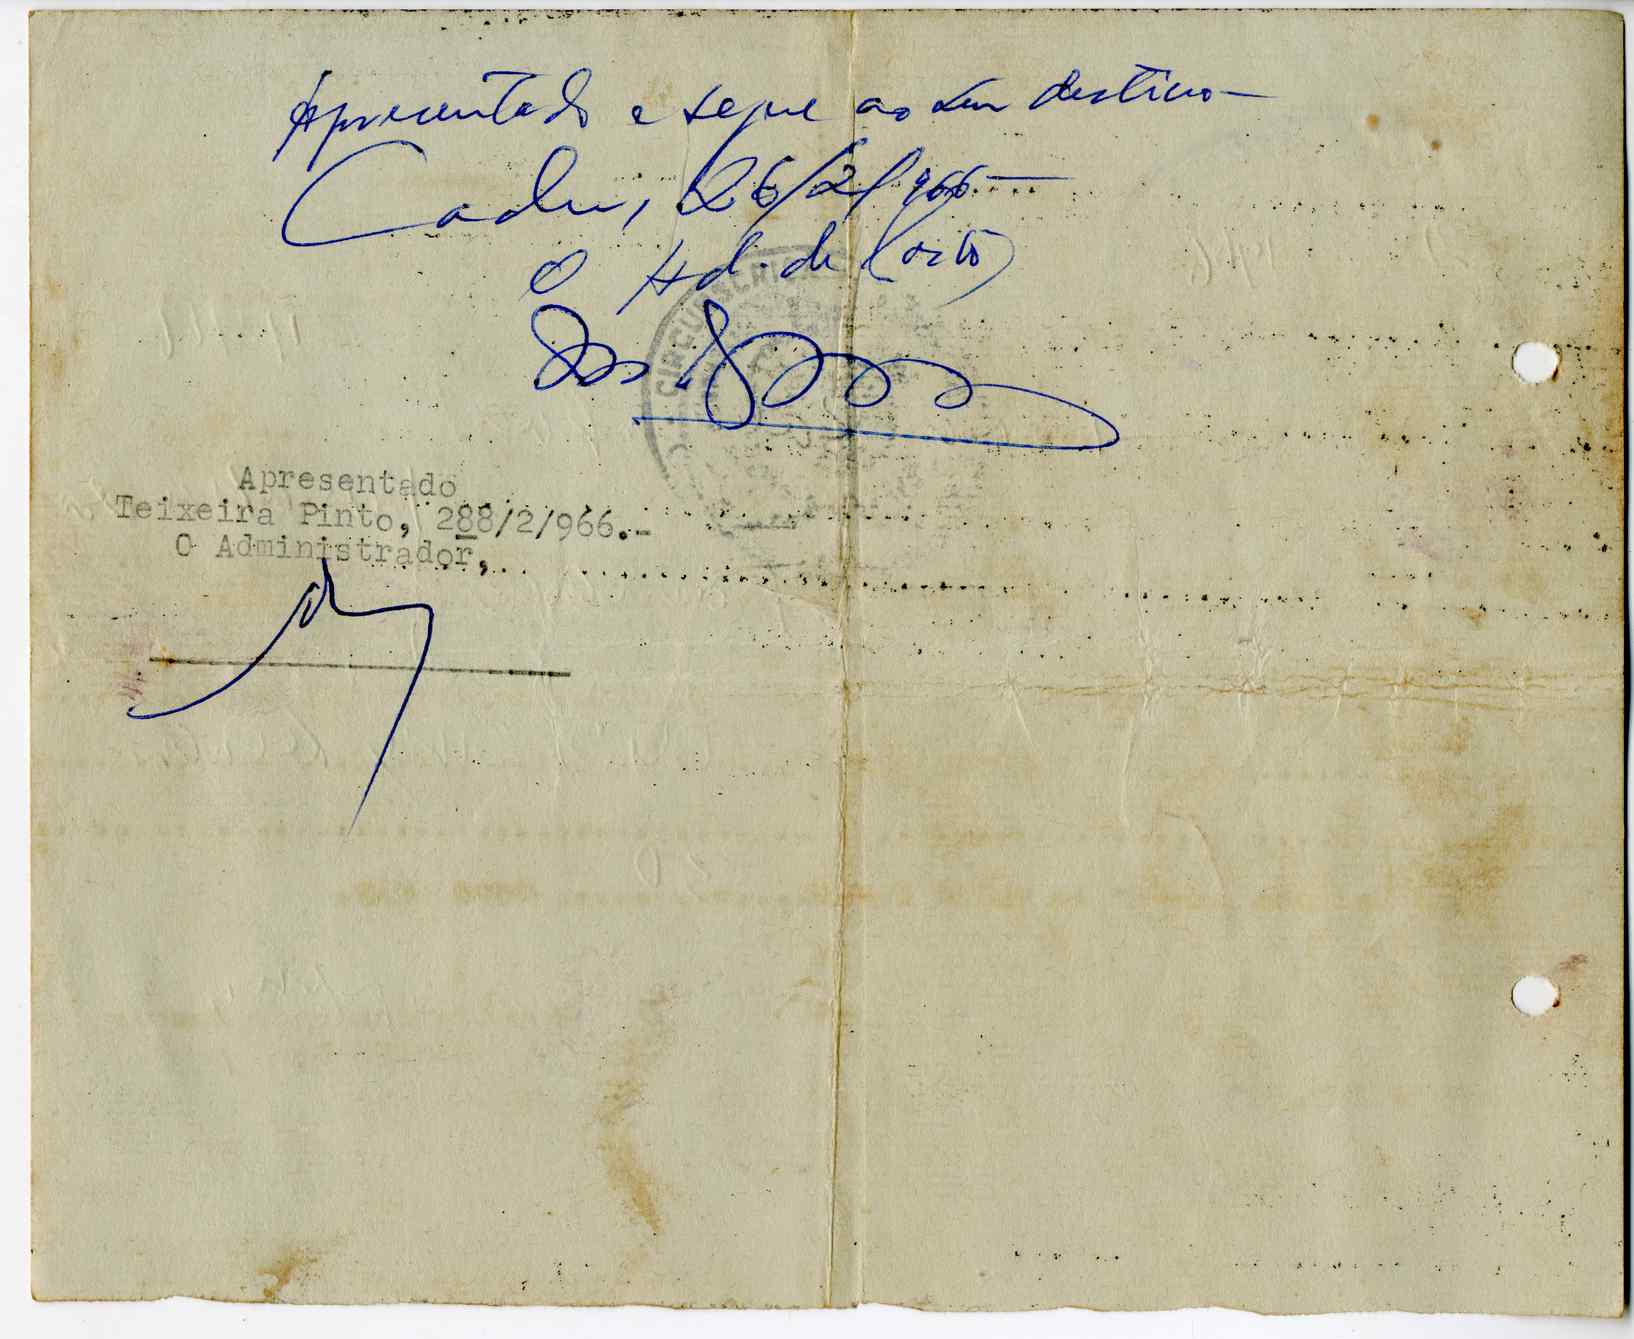 Apresentado e segue ao seu destino —
Cacheu, 26/2/966 —
O Ad. de Posto
CIRCUNSCRI
Apresentado
Teixeira Pinto, 288/2/966.-
O Administrador,